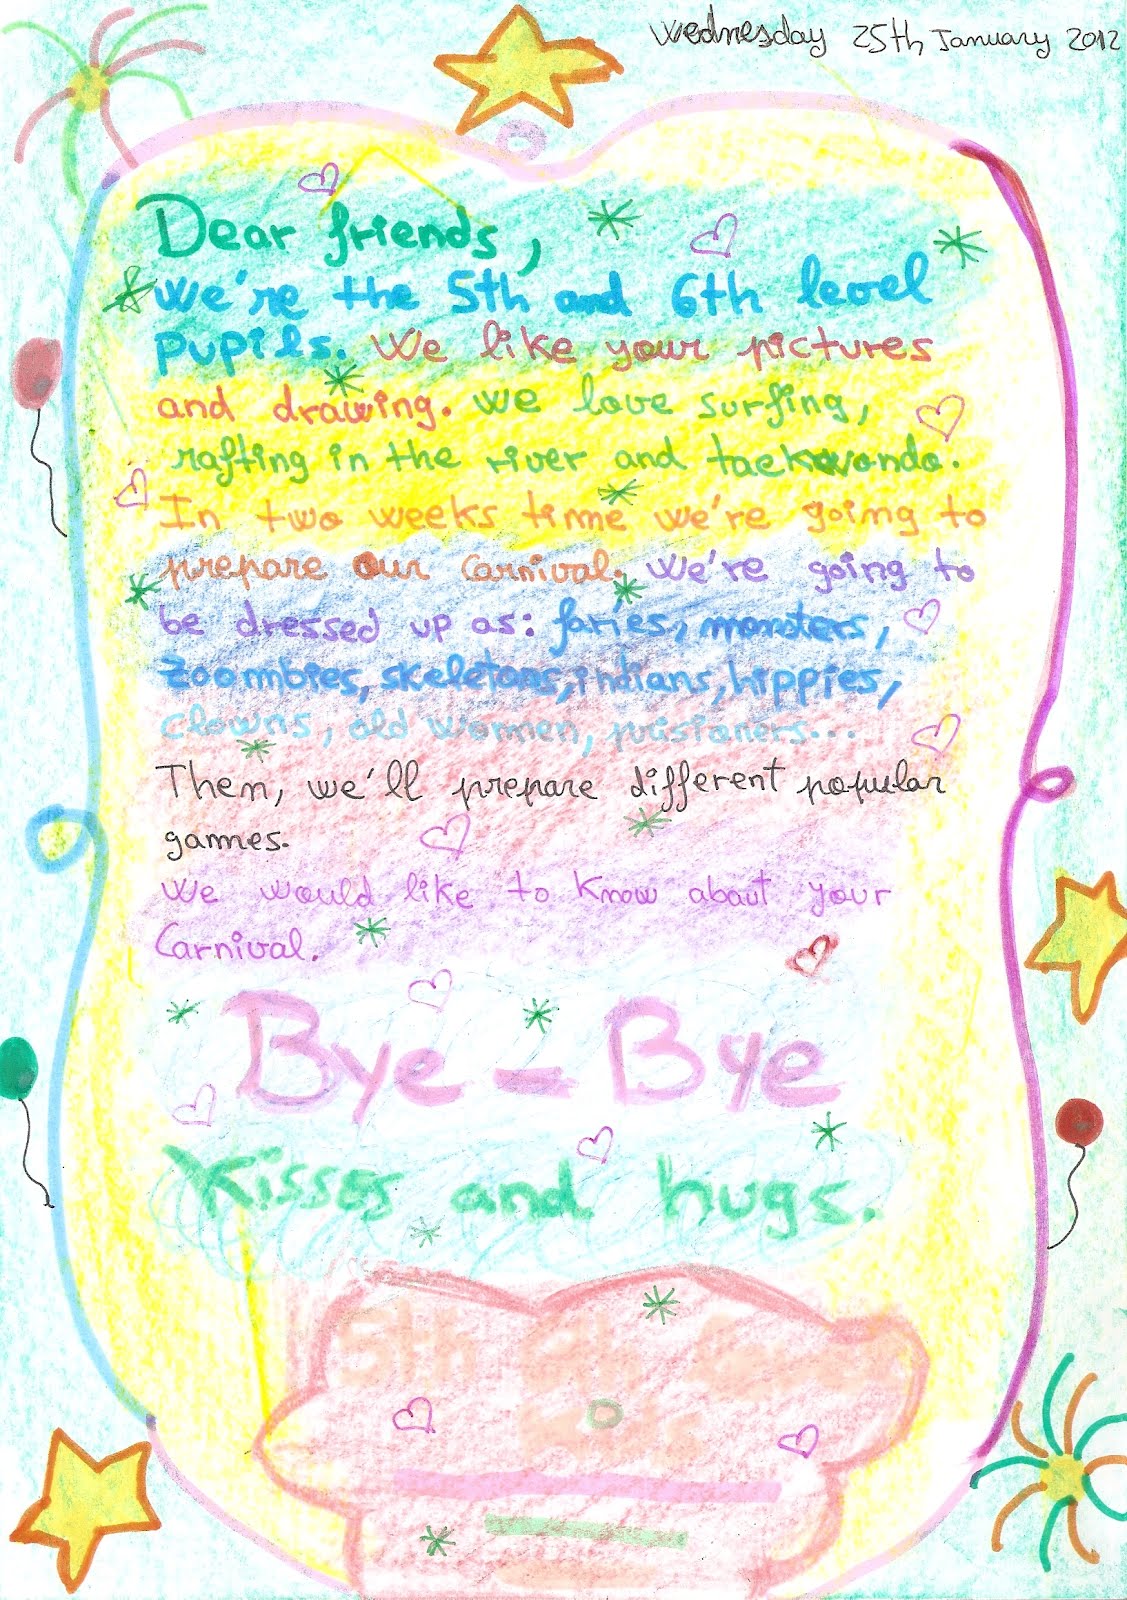 Wednesday 25th January 2012
Dear friends,
We're the 5th and 6th level
pupils. We like your pictures
and drawing. We love surfing,
rafting in the river and taekwondo.
In two weeks time we're going to
prepare our Carnival. We're going to
be dressed up as: faries, monsters,
zoombies, skeletons, indians, hippies,
clowns, old women, prisioners...
Them, we'll prepare different popular
games.
We would like to know about your
Carnival.
Bye-Bye
Kisses and hugs.
5th